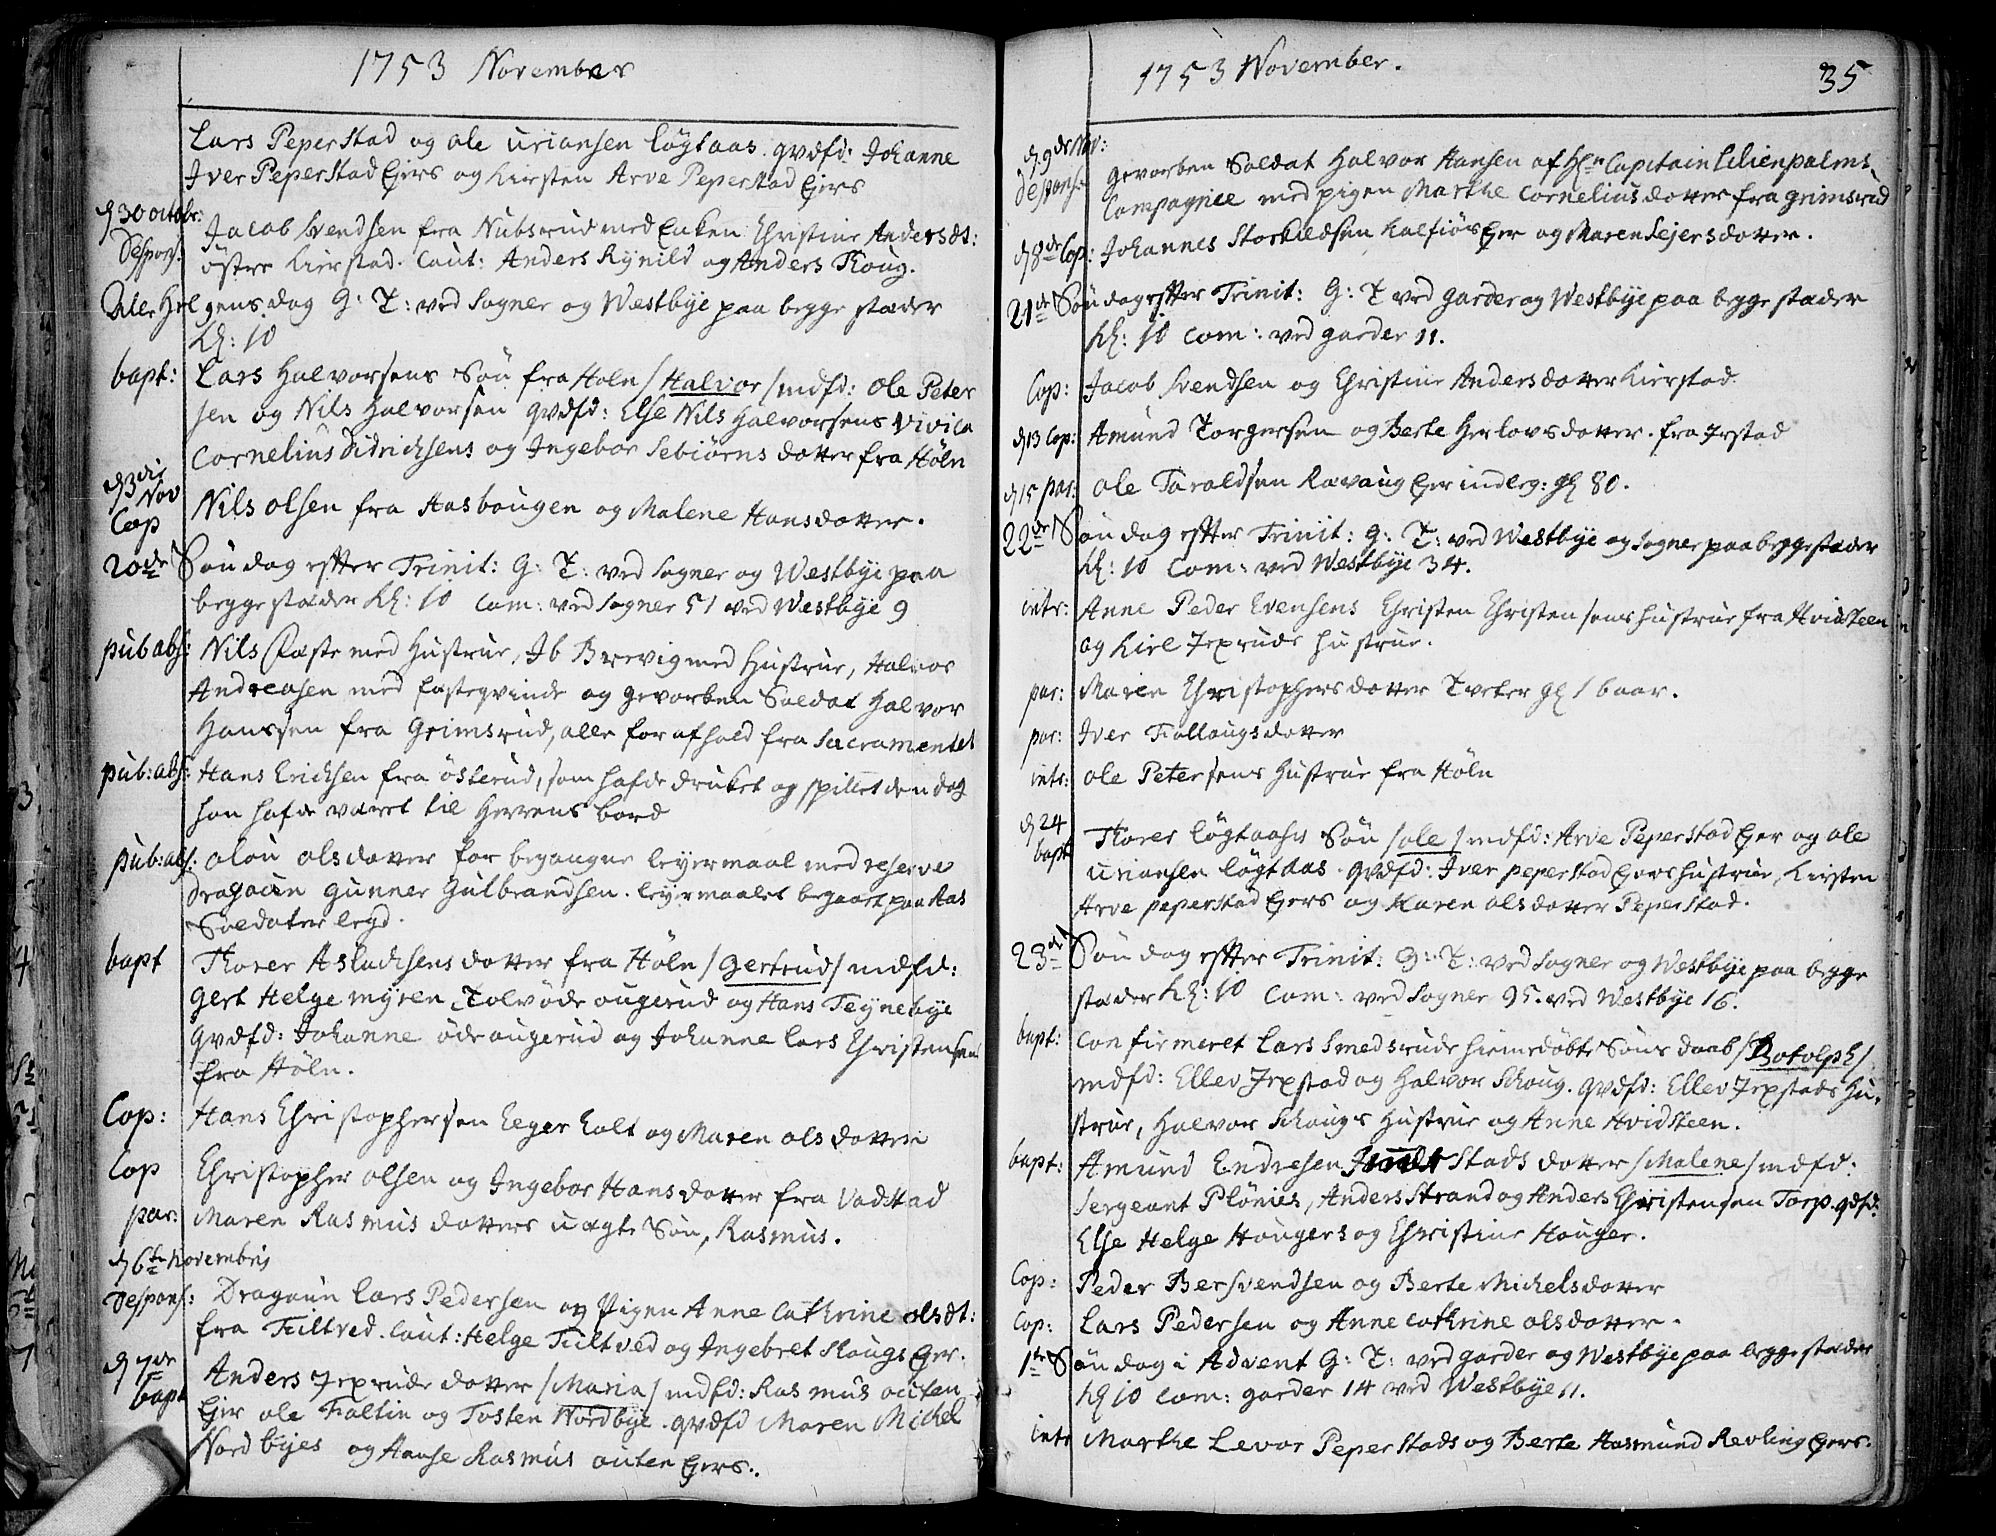 1753 November
Lars Peperstad og ole urionsen løgtaas. qvdfd: Johanne
Iver Peperstad Ejers og Kirsten Arve Peperstad Ejers
d 30 octobr: Jacob Svendsen fra Nubsrud med Enken Christine Andersdt:
Despons: östre Kierstad. Caut: Anders Rynild og Anders Skoug.
Alle Helgens dag G: T: ved Sogner og Westbye paa begge stæder
Kl: 10
bapt: Lars Halvorsens Søn fra Holn / Halvor / mdfd: Ole Peter
sen og Nils Halvorsen qvdfd: Else Nils Halvorsens Vivica
Cornelius Didrichsens og Ingebor Sebiörns dotter fra Höln
d 3die Nov
Cop Nils olsen fra Aasbougen og Malene Hansdotter.
20de Søndag efter Trinit: G: T: ved Sogner og Westbye paa
begge stæder Kl: 10 Com: ved Sogner 51 ved Westbye 9
pub abs: Nils Fæste med Hustrue, Ib Brevig med Hustrue, Halvor
Andreasen med fæsteqvinde og gevorben Soldat Halvor
Hanssen fra Grimsrud, alle for afhold fra Sacramentet
pub: abs: Hans Erichsen fra österud, som hafde druket og spillet den dag
han hafde været til Herrens bord
pub: abs: olou olsdotter for begangne leyermaal med reserve
dragoun Gunner Gulbrandsen. leyermaalet begaaet paa Aas
Soldater legd.
bapt Thorer Aslachsens dotter fra Höln / Gertrud / mdfd:
Gert Helgemyren, Tolv ödeougerud og Hans Teynebye
qvdfd: Johanne ödeougerud og Johanne Lars Christensens
fra Höln.
Cop: Hans Christophersen Leger holt og Maren olsdotter
Cop Christopher olsen og Ingebor Hansdotter fra Vadstad
par: Maren Rasmusdotters uægte Søn, Rasmus.
d 6te Novembris
Despons: Dragoun Lars Pedersen og Pigen Anne Cathrine olsdt:
fra Fultved. Caut: Helge Fultved og Ingebret Skougs Ejer.
d 7de
bapt Anders Jerprude dotter / Maria / mdfd: Rasmus outen
Ejer ole Faltin og Tosten Nordbye. qvdfd Maren Michel
Nordbyes og Aanse Rasmus outen Ejers.
1753 November. 35
d 9de Nov:
Despons: Gevorben Soldat Halvor Hansen af Hrn Capitain Lilienpalms
Compagnie med pigen Marthe Corneliusdotter fra Grimsrud
d 8de Cop: Johannes Storkildsen Kalfiös Ejer og Maren Sejersdotter.
21de Søndag efter Trinit: G: T ved garder og Westbye paa begge stæder
Kl: 10 Com: ved garder 11.
Cop: Jacob Svendsen og Christine Andersdotter Kierstad
d 13 Cop: Amund Torgersen og Berte Herlovsdotter. fra Irstad
d 15 par: ole Taraldsen Ravaug Ejer indleg: gl 80.
22de Søndag efter Trinit: G: T: ved Westbye og Sogner paa begge stæder
Kl: 10 Com: ved Westbye 34.
intr: Anne Peder Evensens Christen Christensens hustrue fra Hvidsteen
og Kiel Jerprude hustrue.
par: Maren Christophersdotter Tveter gl 1 baar.
par: Iver Fallougsdotter
intr: ole Petersens Hustrue fra Höln
d 24
bapt Thorer løgtaases Søn / ole / mdfd: Arve Peperstad Ejer og ole
urionsen løgtaas. qvdfd: Iver peperstad Ejers hustrue, Kirsten
Arve peperstad Ejers og Karen olsdotter Peperstad.
23de Søndag efter Trinit: G: T: ved Sogner og Westbye paa begge
stæder Kl: 10 Com: ved Sogner 95. ved Westbye 16.
bapt: Confirmeret Lars Smedsruds hiemedøbte Søns daab / Botolph /
mdfd: Ellev Jrpstad og Halvor Schoug. qvdfd: Ellev Jrpstads Hu,
strue, Halvor Schougs Hustrue og Anne Hvidsteen.
bapt: Amund Endresen stads dotter / Malene / mdfd:
Sergeant Plönius, Anders Strand og Anders Christensen Torp. qdfd:
Else Helge Hougers og Christine Houger.
Cop: Peder Bersvendsen og Berte Michelsdotter
Cop: Lars Pedersen og Anne Cathrine olsdotter.
1te Søndag i Advent G: T: ved garder og Westbye paa begge stæder
Kl 10 Com: garder 14 ved Westbye 11.
intr Marthe Levor Peperstads og Berte Aasmund Revling Ejers.